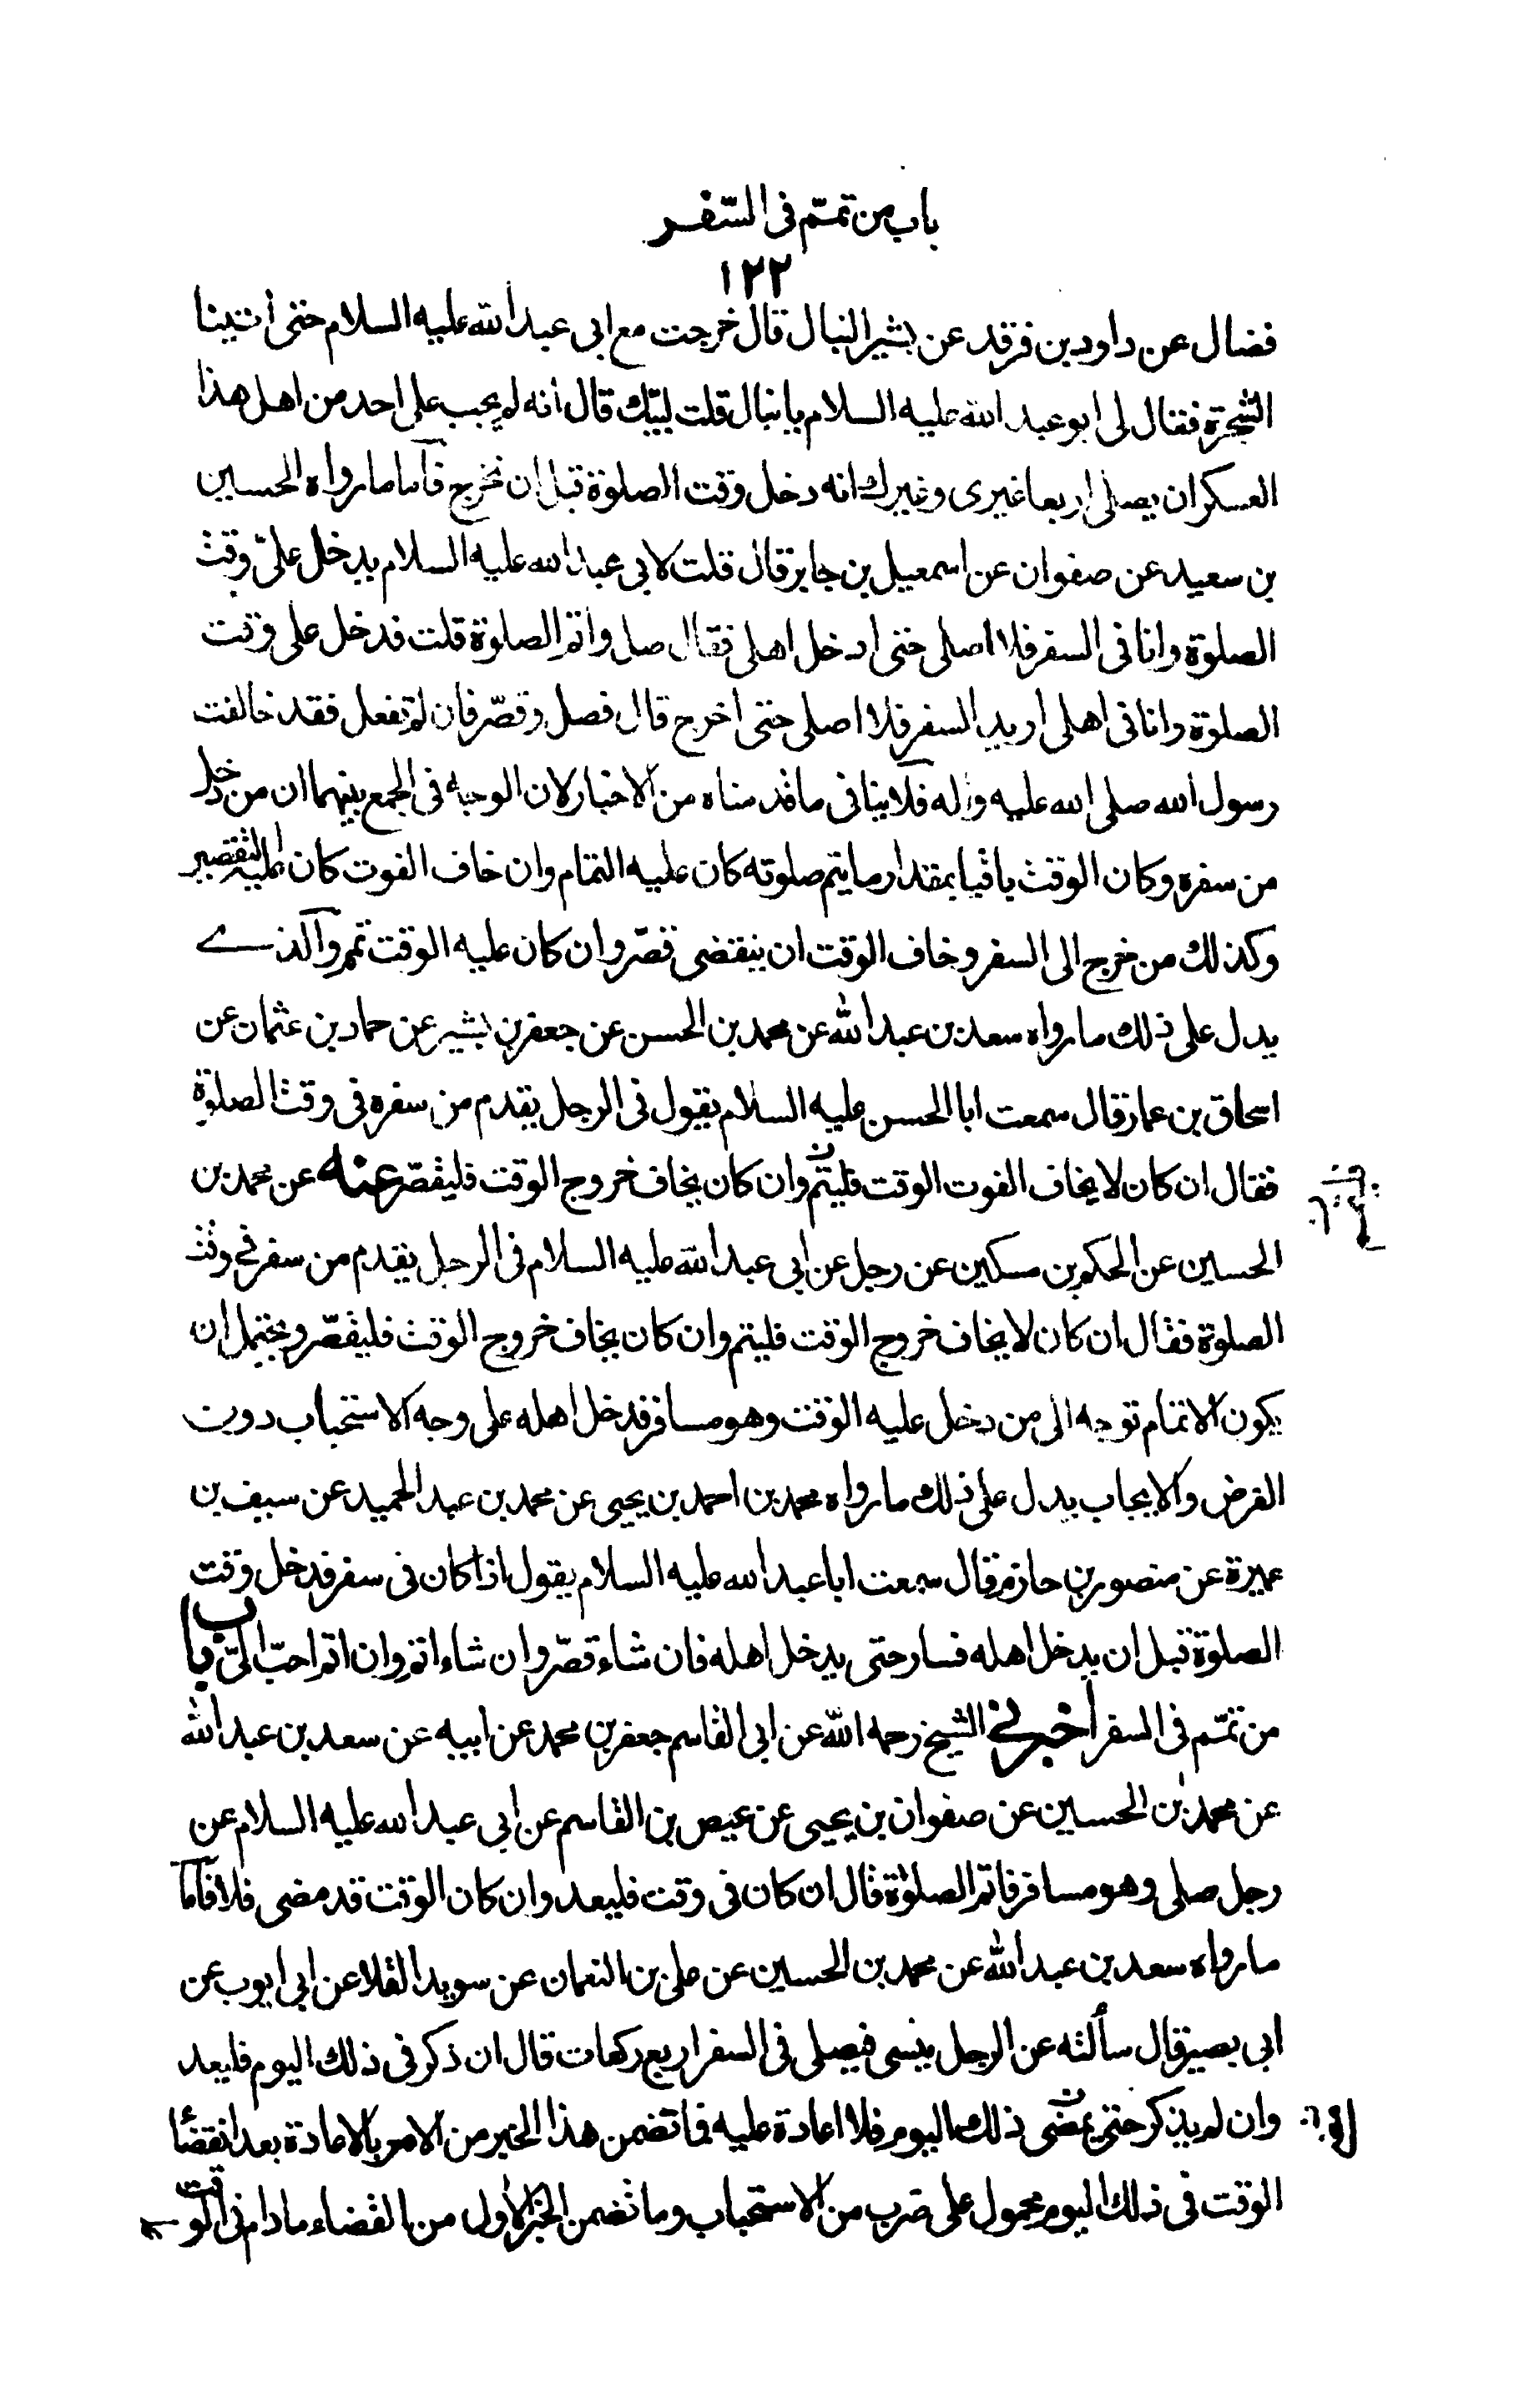 باب من تمّم فى السّفر
١٢٢
فضال عن داود بن فرقد عن بشير النبال قال خرجت مع ابى عبد الله عليه السلام حتى اتينا
الشجرة فقال لى ابو عبد الله عليه السلام يا نبال قلت لبّيك قال انه لم يجب على احد من اهل هذا
العسكر ان يصلى اربعا غيرى وغيرك انه دخل وقت الصلوة قبل ان نخرج فامّا ما رواه الحسين
بن سعيد عن صفوان عن اسمعيل بن جابر قال قلت لابى عبد الله عليه السلام يدخل علىّ وقت
الصلوة وانا فى السفر فلا اصلى حتى ادخل اهلى فقال صل واتم الصلوة قلت فدخل على وقت
الصلوة وانا فى اهلى اريد السفر فلا اصلى حتى اخرج قال فصل وقصّر فان لم تفعل فقد خالفت
رسول الله صلى الله عليه وآله فلا ينافى ما قدمناه من الاخبار لان الوجه فى الجمع بينهما ان من دخل
من سفره وكان الوقت باقيا بمقدار ما يتم صلوته كان عليه التمام وان خاف الفوت كان عليه التقصير
وكذلك من خرج الى السفر وخاف الوقت ان ينقضى قصّر وان كان عليه الوقت تمم والذى
يدل على ذلك ما رواه سعد بن عبد الله عن محمد بن الحسن عن جعفر بن بشير عن حماد بن عثمان عن
اسحاق بن عمار قال سمعت ابا الحسن عليه السلام يقول فى الرجل يقدم من سفره فى وقت الصلوة
فقال ان كان لا يخاف الفوت الوقت فليتم وان كان يخاف خروج الوقت فليقصّر عنه عن محمد بن
الحسين عن الحكم بن مسكين عن رجل عن ابى عبد الله عليه السلام فى الرجل يقدم من سفر فى وقت
الصلوة فقال ان كان لا يخاف خروج الوقت فليتم وان كان يخاف خروج الوقت فليقصّر ويحتمل ان
يكون الاتمام توجه الى من دخل عليه الوقت وهو مسافر فدخل اهله على وجه الاستحباب دون
الفرض والايجاب يدل على ذلك ما رواه محمد بن احمد بن يحيى عن محمد بن عبد الحميد عن سيف بن
عميرة عن منصور بن حازم قال سمعت ابا عبد الله عليه السلام يقول اذا كان فى سفر فدخل وقت
الصلوة قبل ان يدخل اهله فسار حتى يدخل اهله فان شاء قصّر وان شاء اتم وان اتم احبّ الىّ باب
من تمّم فى السفر أخبرنى الشيخ رحمه الله عن ابى القاسم جعفر بن محمد عن ابيه عن سعد بن عبد الله
عن محمد بن الحسين عن صفوان بن يحيى عن عيص بن القاسم عن ابى عبد الله عليه السلام عن
رجل صلى وهو مسافر فاتم الصلوة قال ان كان فى وقت فليعد وان كان الوقت قد مضى فلا فامّا
ما رواه سعد بن عبد الله عن محمد بن الحسين عن على بن النعمان عن سويد القلا عن ابى ايوب عن
ابى بصير قال سألته عن الرجل ينسى فيصلى فى السفر اربع ركعات قال ان ذكر فى ذلك اليوم فليعد
وان لم يذكر حتى يمضى ذلك اليوم فلا اعادة عليه فما تضمن هذا الخبر من الامر بالاعادة بعد انقضاء
الوقت فى ذلك اليوم محمول على ضرب من الاستحباب وما تضمن الخبر الاول من القضاء ما دام فى الوقت